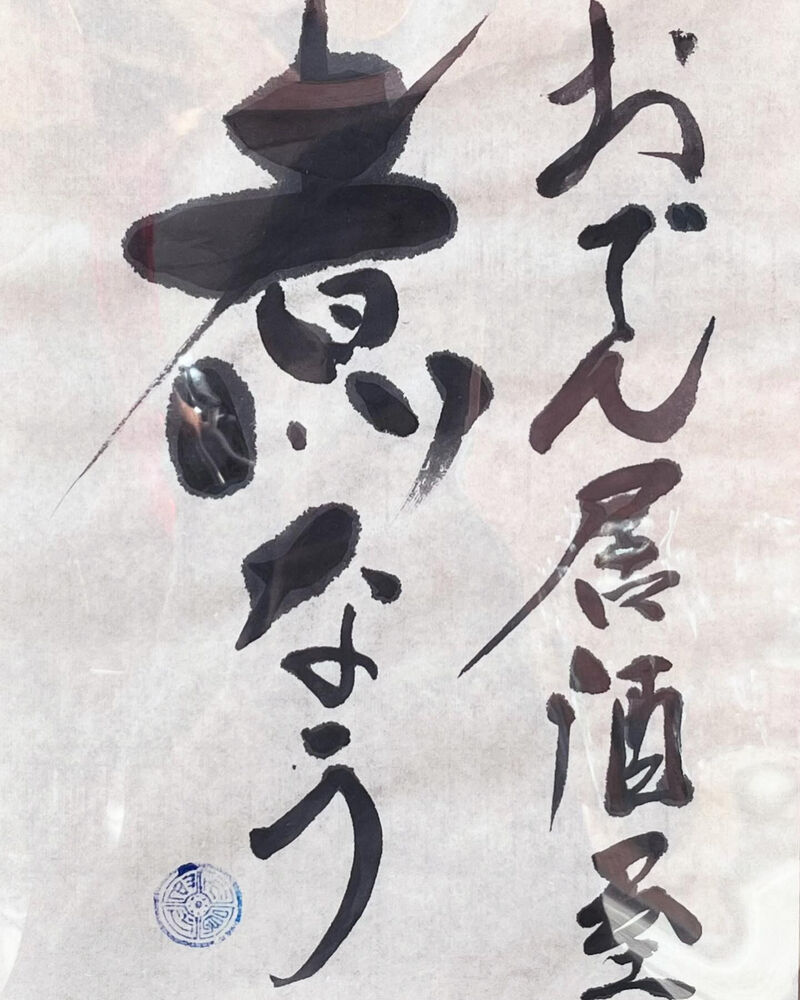 おでん居酒屋
煮なう